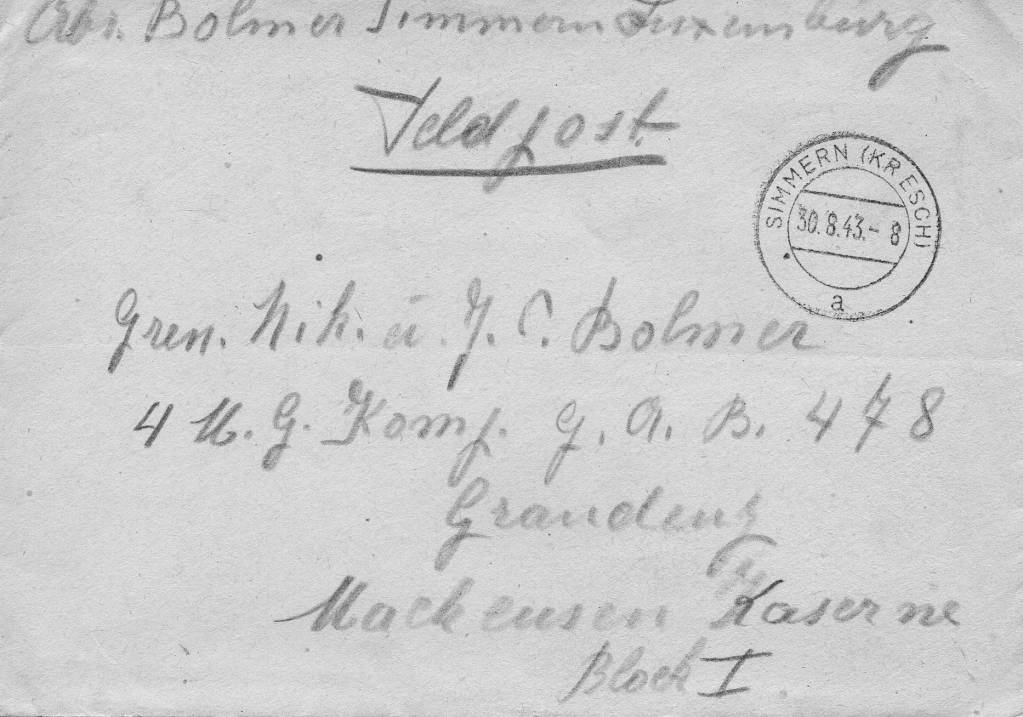 Abs. Bolmer Simmern Luxemburg
Feldpost
SIMMERN (KR ESCH)
30.8.43.- 8
a
Gren. Nik. u. J. C. Bolmer
4 M. G. Komp. G. A. B. 478
Graudenz
Mackensen Kaserne
Block I